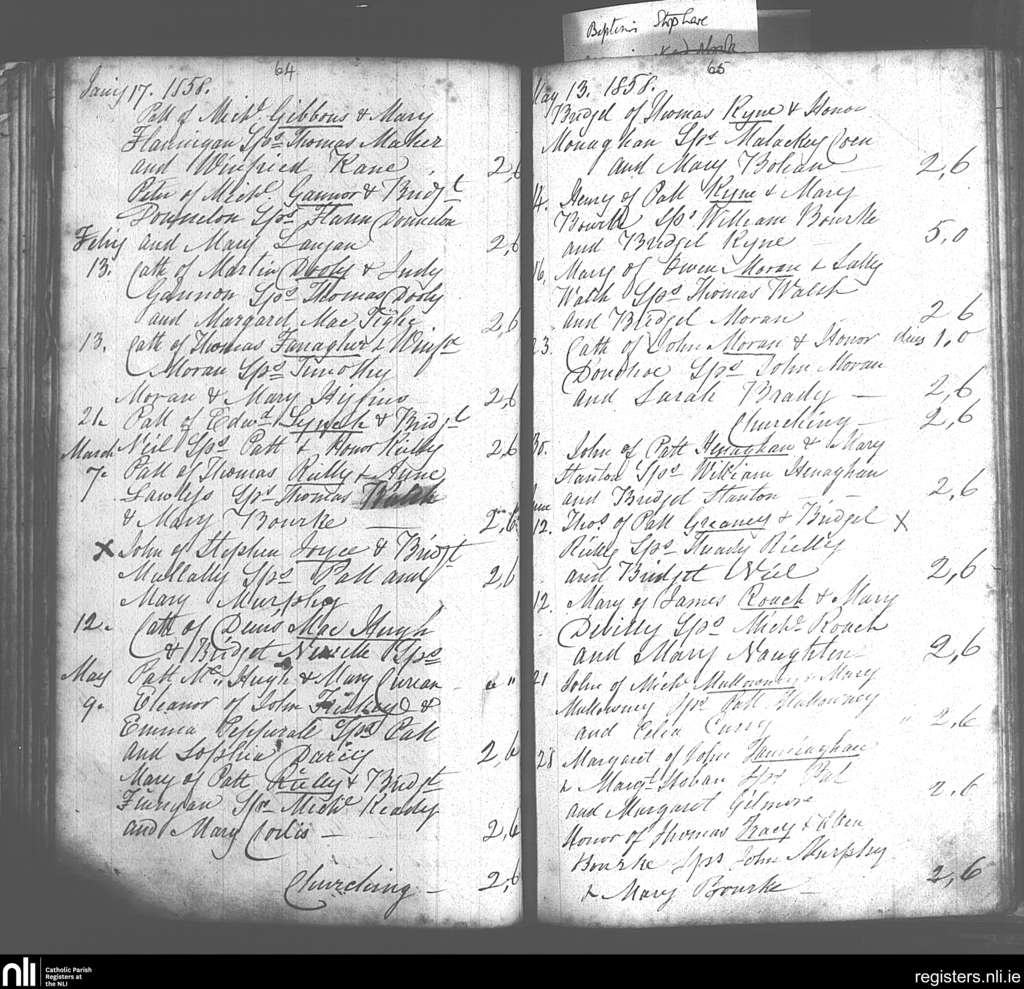 Baptisms
64
Jany 17. 1858.
Patt of Michl. Gibbons & Mary
Flannigan Sps Thomas Maher
and Winifred Kane 2,6
Peter of Michl. Gannon & Bridgt
Donnelon Sps
Feby and Mary Langan 2,6
13. Cath of Martin Dooly & Judy
Gannon Sps Thomas Dooly
and Margaret Mac Tighe 2,6
13. Cath of Thomas & Winfd
Moran Sps Timothy
Moran & Mary Higgins 2,6
21. Patt of Edwd & Bridgt
March Neil Sps Patt & Honor Rielly 2,6
7. Patt of Thomas Rielly & Anne
Sps Thomas Walsh
& Mary Bourke 2,6
X John of Stephen Joyce & Bridgt
Mullally Sps Patt and 2,6
Mary Murphy
12. Cath of Denis Mac Hugh
& Bridget Sps
May Patt Mc Hugh & Mary Curran
9. Eleanor of John &
Emma Sps Patt
and Sophia Darcy 2,6
Mary of Patt Rielly & Bridgt
Finnegan Sps Michl
and Mary Corlis 2,6
Churching 2,6
65
May 13. 1858.
Bridget of Thomas Kyne & Honor
Monaghan Sps Malackey Coen
and Mary Bohan 2,6
14. Henry of Patt Kyne & Mary
Bourke Sps William Bourke
and Bridget Kyne 5,0
16. Mary of Owen Moran & Sally
Walsh Sps Thomas Walsh
and Bridget Moran 2,6
23. Cath of John Moran & Honor 1,0
Donohoe Sps John Moran
and Sarah Brady 2,6
Churching 2,6
30. John of Patt Henaghan & Mary
Stanton Sps William Henaghan
and Bridget Stanton 2,6
June
12. Thos of Patt Greaney & Bridget X
Rielly Sps Rielly
and Bridget Neil 2,6
12. Mary of James Roach & Mary
Devilly Sps Michl. Roach
and Mary Naughten 2,6
21 John of Michl. Mullowney & Mary
Mullowney Sps Patt Mullowney
and Celia Curry 2,6
28 Margaret of John
& Margt Hoban Sps Pat
and Margaret Gilmore 2,6
Honor of Thomas Tracy & Ellen
Bourke Sps John Murphy
& Mary Bourke 2,6
nli
Catholic Parish
Registers at
the NLI
registers.nli.ie